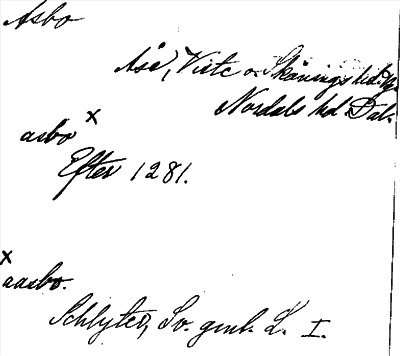 Asbo
Åse, Viste o. Skånings hd.
Nordals hd. Dal.
asbo x
Efter 1281.
x
aasbo.
Schlyter, Sv. gml. L. I.